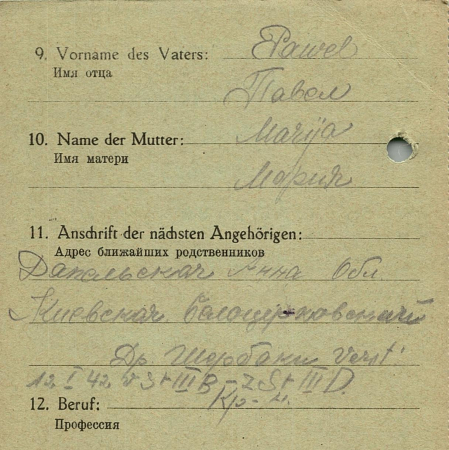 9. Vorname des Vaters: Pawel
Имя отца
Павел
10. Name der Mutter: Marija
Имя матери
Мария
11. Anschrift der nächsten Angehörigen:
Адрес ближайших родственников
Анна Обл
Киевская Белоцерковский
Др.
12 I 42 v St III B – Z St III D.
12. Beruf: Кр-н.
Профессия